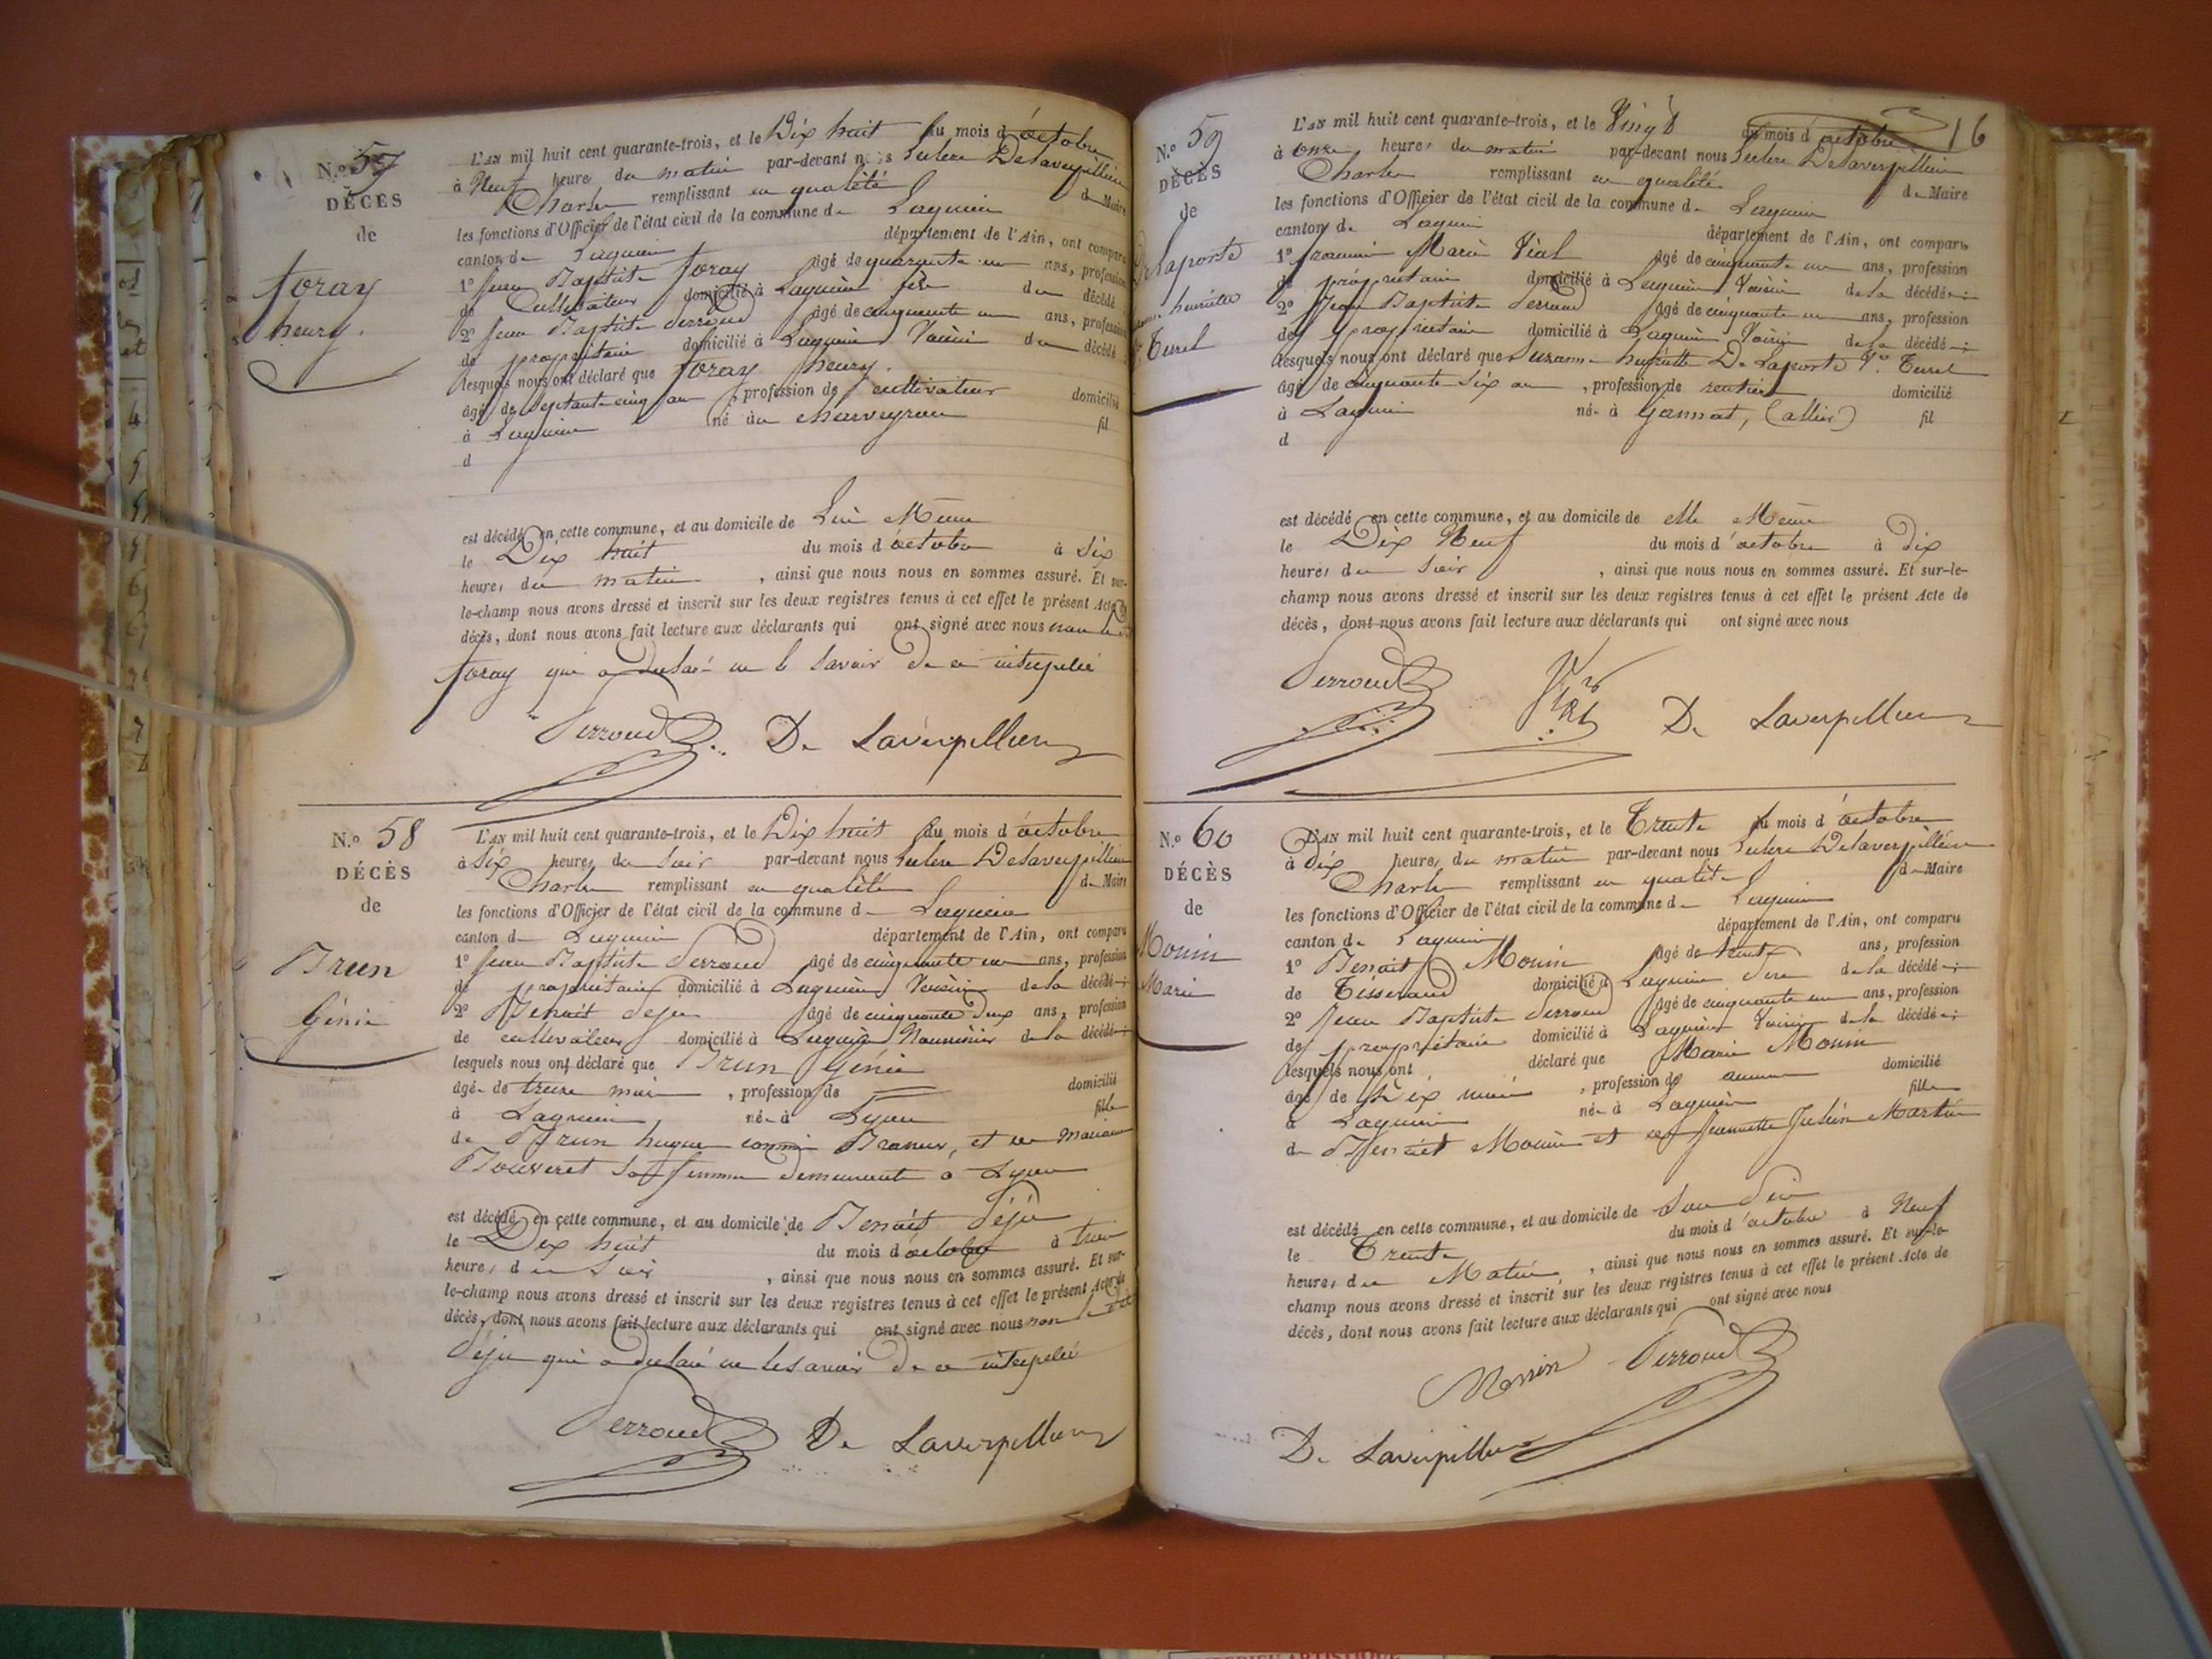 N.º 57
DÉCÈS
de
foray
henry.
L'AN mil huit cent quarante-trois, et le Dix huit du mois d'octobre
à Neuf heures du matin par-devant nous Delaverpillière
Charles remplissant en qualité de Maire
les fonctions d'Officier de l'état civil de la commune de Lagnieu
canton de Lagnieu département de l'Ain, ont comparu
1º Jean Baptiste foray âgé de quarante un ans, profession
de Cultivateur domicilié à Lagnieu fils du décédé
2º Jean Baptiste Perroud âgé de cinquante un ans, profession
de propriétaire domicilié à Lagnieu Voisin du décédé
lesquels nous ont déclaré que foray henry.
âgé de septante cinq ans, profession de cultivateur domicilié
à Lagnieu né au charveyron fil
d
est décédé en cette commune, et au domicile de Lui Même
le Dix huit du mois d'octobre à Six
heures du matin, ainsi que nous nous en sommes assuré. Et sur-
le-champ nous avons dressé et inscrit sur les deux registres tenus à cet effet le présent Acte de
décès, dont nous avons fait lecture aux déclarants qui ont signé avec nous non le dit
foray qui a declaré ne le savoir de ce interpellé
Perroud De Laverpillière
N.º 58
DÉCÈS
de
Brun
Génie
L'AN mil huit cent quarante-trois, et le Dix huit du mois d'octobre
à Six heures du Soir par-devant nous Delaverpillière
Charles remplissant en qualité de Maire
les fonctions d'Officier de l'état civil de la commune de Lagnieu
canton de Lagnieu département de l'Ain, ont comparu
1º Jean Baptiste Perroud âgé de cinquante un ans, profession
de propriétaire domicilié à Lagnieu Voisin de la décédée
2º Benoit déju âgé de cinquante deux ans, profession
de cultivateur domicilié à Lagnieu Nourricier de la décédée
lesquels nous ont déclaré que Brun Génie
âgée de treize mois, profession de domicilié
à Lagnieu née à Lyon fille
de Brun hugue commis et de Mariane
Bouveret sa femme demeurant à Lyon
est décédé en cette commune, et au domicile de Benoit Déju
le Dix huit du mois d'octobre à trois
heures du Soir, ainsi que nous nous en sommes assuré. Et sur-
le-champ nous avons dressé et inscrit sur les deux registres tenus à cet effet le présent Acte de
décès, dont nous avons fait lecture aux déclarants qui ont signé avec nous non le dit
Déju qui a declaré ne le savoir de ce interpellé
Perroud De Laverpillière
16
N.º 59
DÉCÈS
de
Delaporte
henriette
Ve. Turel
L'AN mil huit cent quarante-trois, et le Vingt du mois d'octobre
à onze heures du matin par-devant nous Delaverpillière
Charles remplissant en qualité de Maire
les fonctions d'Officier de l'état civil de la commune de Lagnieu
canton de Lagnieu département de l'Ain, ont comparu
1º Marie Vial âgé de cinquante un ans, profession
de propriétaire domicilié à Lagnieu Voisin de la décédée
2º Jean Baptiste Perroud âgé de cinquante un ans, profession
de propriétaire domicilié à Lagnieu Voisin de la décédée
lesquels nous ont déclaré que henriette De Laporte Ve. Turel
âgé de cinquante six ans, profession de rentière domicilié
à Lagnieu née à Gannat, (allier) fil
d
est décédé en cette commune, et au domicile de elle Même
le Dix Neuf du mois d'octobre à dix
heures du Soir, ainsi que nous nous en sommes assuré. Et sur-le-
champ nous avons dressé et inscrit sur les deux registres tenus à cet effet le présent Acte de
décès, dont nous avons fait lecture aux déclarants qui ont signé avec nous
Perroud Vial De Laverpillière
N.º 60
DÉCÈS
de
Monin
Marie
L'AN mil huit cent quarante-trois, et le Trente du mois d'octobre
à Dix heures du matin par-devant nous Delaverpillière
Charles remplissant en qualité de Maire
les fonctions d'Officier de l'état civil de la commune de Lagnieu
canton de Lagnieu département de l'Ain, ont comparu
1º Benoit Monin âgé de trente ans, profession
de Tisserand domicilié à Lagnieu Père de la décédée
2º Jean Baptiste Perroud âgé de cinquante un ans, profession
de propriétaire domicilié à Lagnieu Voisin de la décédée
lesquels nous ont déclaré que Marie Monin
âgé de Dix mois, profession de aucune domicilié
à Lagnieu née à Lagnieu fille
de Benoit Monin et de Jeannette Martin
est décédé en cette commune, et au domicile de Son Père
le Trente du mois d'octobre à Neuf
heures du Matin, ainsi que nous nous en sommes assuré. Et sur-le-
champ nous avons dressé et inscrit sur les deux registres tenus à cet effet le présent Acte de
décès, dont nous avons fait lecture aux déclarants qui ont signé avec nous
Monin Perroud
De Laverpillière